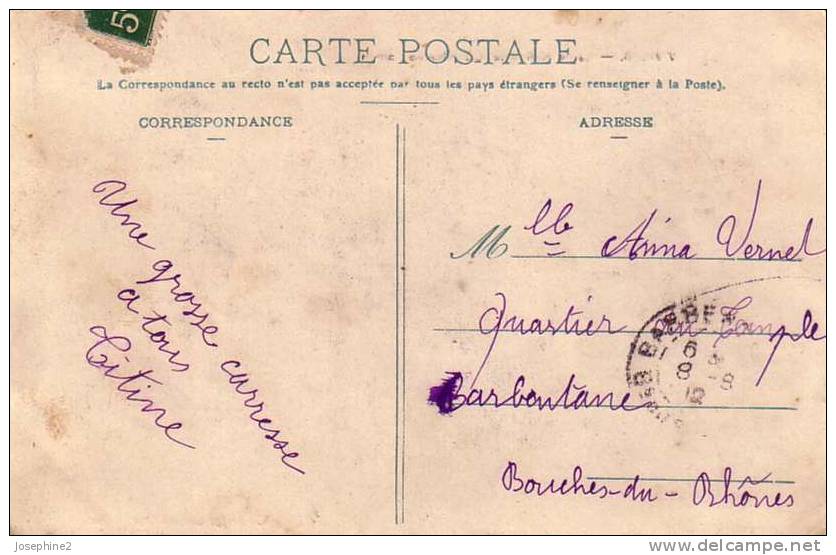 5
CARTE POSTALE
La Correspondance au recto n'est pas acceptée par tous les pays étrangers (Se renseigner à la Poste).
CORRESPONDANCE
Une grosse carresse
a tous
Titine
ADRESSE
Mlle Anna Vernet
Quartier du Temple
Barbentane
Bouches-du-Rhônes
6
8
Josephine2
www.delcampe.net